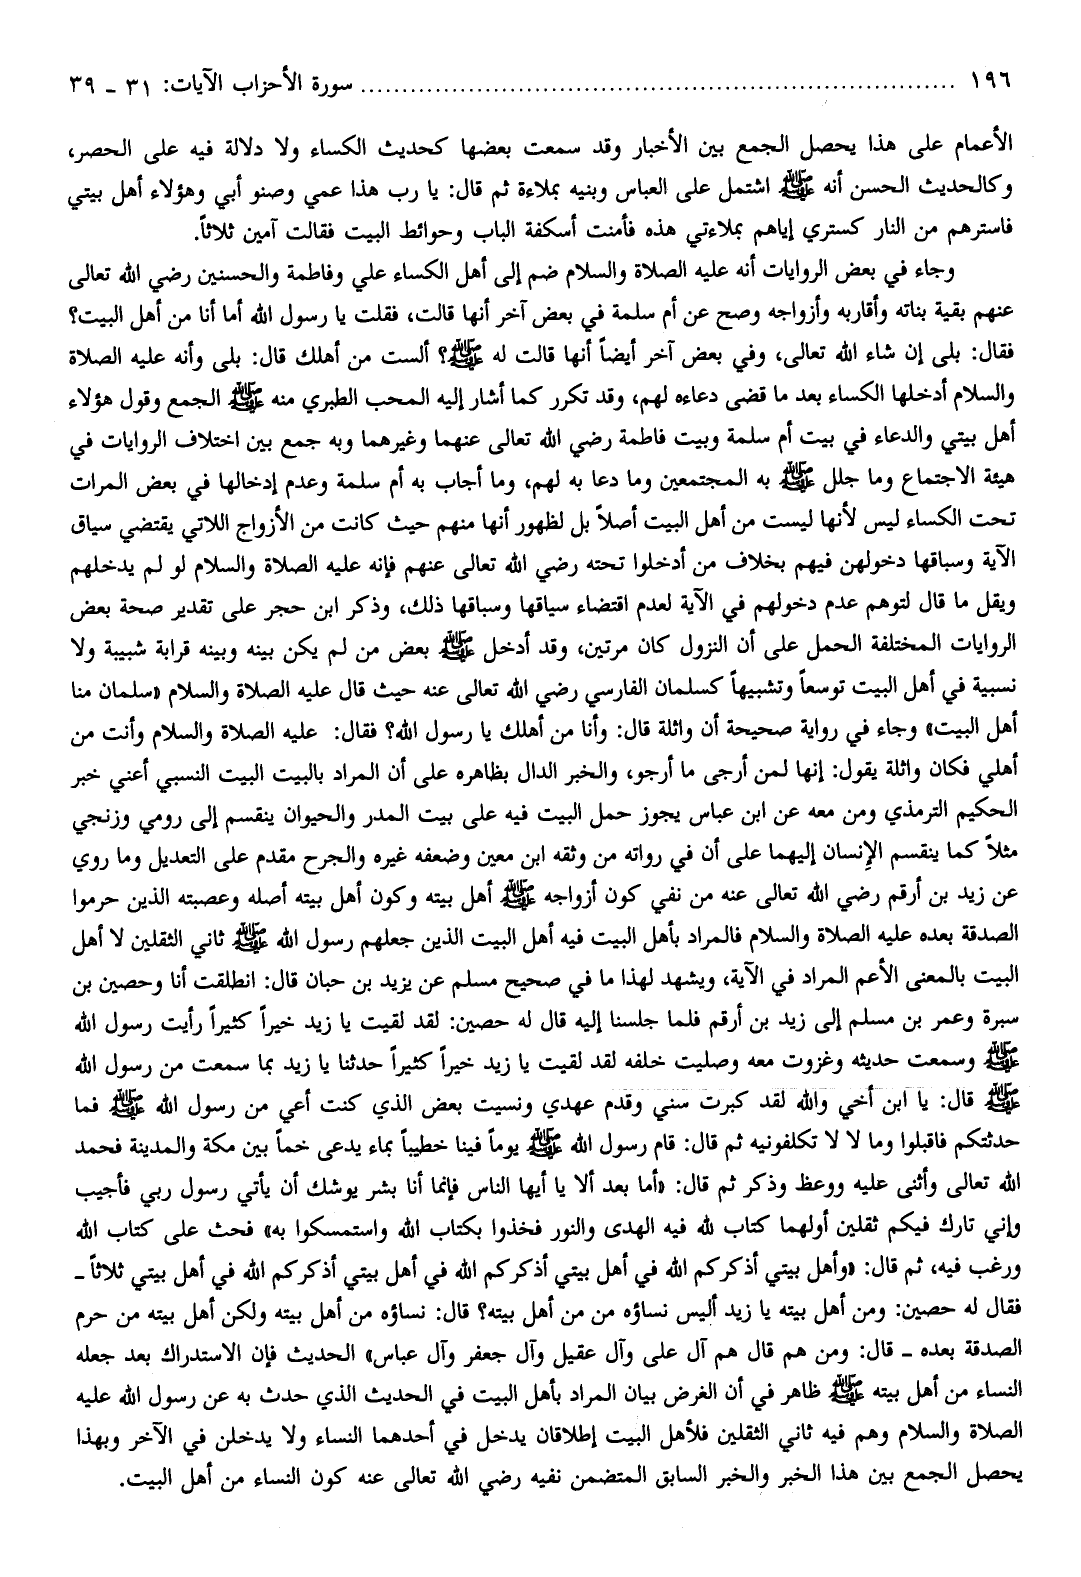 ١٩٦ ........................................................................ سورة الأحزاب الآيات: ٣١ ـ ٣٩
الأعمام على هذا يحصل الجمع بين الأخبار وقد سمعت بعضها كحديث الكساء ولا دلالة فيه على الحصر،
وكالحديث الحسن أنه ﷺ اشتمل على العباس وبنيه بملاءة ثم قال: يا رب هذا عمي وصنو أبي وهؤلاء أهل بيتي
فاسترهم من النار كستري إياهم بملاءتي هذه فأمنت أسكفة الباب وحوائط البيت فقالت آمين ثلاثاً.
وجاء في بعض الروايات أنه عليه الصلاة والسلام ضم إلى أهل الكساء علي وفاطمة والحسنين رضي الله تعالى
عنهم بقية بناته وأقاربه وأزواجه وصح عن أم سلمة في بعض آخر أنها قالت، فقلت يا رسول الله أما أنا من أهل البيت؟
فقال: بلى إن شاء الله تعالى، وفي بعض آخر أيضاً أنها قالت له ﷺ؟ ألست من أهلك قال: بلى وأنه عليه الصلاة
والسلام أدخلها الكساء بعد ما قضى دعاءه لهم، وقد تكرر كما أشار إليه المحب الطبري منه ﷺ الجمع وقول هؤلاء
أهل بيتي والدعاء في بيت أم سلمة وبيت فاطمة رضي الله تعالى عنهما وغيرهما وبه جمع بين اختلاف الروايات في
هيئة الاجتماع وما جلل ﷺ به المجتمعين وما دعا به لهم، وما أجاب به أم سلمة وعدم إدخالها في بعض المرات
تحت الكساء ليس لأنها ليست من أهل البيت أصلاً بل لظهور أنها منهم حيث كانت من الأزواج اللاتي يقتضي سياق
الآية وسباقها دخولهن فيهم بخلاف من أدخلوا تحته رضي الله تعالى عنهم فإنه عليه الصلاة والسلام لو لم يدخلهم
ويقل ما قال لتوهم عدم دخولهم في الآية لعدم اقتضاء سياقها وسباقها ذلك، وذكر ابن حجر على تقدير صحة بعض
الروايات المختلفة الحمل على أن النزول كان مرتين، وقد أدخل ﷺ بعض من لم يكن بينه وبينه قرابة شبيبة ولا
نسبية في أهل البيت توسعاً وتشبيهاً كسلمان الفارسي رضي الله تعالى عنه حيث قال عليه الصلاة والسلام «سلمان منا
أهل البيت» وجاء في رواية صحيحة أن واثلة قال: وأنا من أهلك يا رسول الله؟ فقال: عليه الصلاة والسلام وأنت من
أهلي فكان واثلة يقول: إنها لمن أرجى ما أرجو، والخبر الدال بظاهره على أن المراد بالبيت البيت النسبي أعني خبر
الحكيم الترمذي ومن معه عن ابن عباس يجوز حمل البيت فيه على بيت المدر والحيوان ينقسم إلى رومي وزنجي
مثلاً كما ينقسم الإنسان إليهما على أن في رواته من وثقه ابن معين وضعفه غيره والجرح مقدم على التعديل وما روي
عن زيد بن أرقم رضي الله تعالى عنه من نفي كون أزواجه ﷺ أهل بيته وكون أهل بيته أصله وعصبته الذين حرموا
الصدقة بعده عليه الصلاة والسلام فالمراد بأهل البيت فيه أهل البيت الذين جعلهم رسول الله ﷺ ثاني الثقلين لا أهل
البيت بالمعنى الأعم المراد في الآية، ويشهد لهذا ما في صحيح مسلم عن يزيد بن حبان قال: انطلقت أنا وحصين بن
سبرة وعمر بن مسلم إلى زيد بن أرقم فلما جلسنا إليه قال له حصين: لقد لقيت يا زيد خيراً كثيراً رأيت رسول الله
ﷺ وسمعت حديثه وغزوت معه وصليت خلفه لقد لقيت يا زيد خيراً كثيراً حدثنا يا زيد بما سمعت من رسول الله
ﷺ قال: يا ابن أخي والله لقد كبرت سني وقدم عهدي ونسيت بعض الذي كنت أعي من رسول الله ﷺ فما
حدثتكم فاقبلوا وما لا لا تكلفونيه ثم قال: قام رسول الله ﷺ يوماً فينا خطيباً بماء يدعى خماً بين مكة والمدينة فحمد
الله تعالى وأثنى عليه ووعظ وذكر ثم قال: «أما بعد ألا يا أيها الناس فإنما أنا بشر يوشك أن يأتي رسول ربي فأجيب
وإني تارك فيكم ثقلين أولهما كتاب لله فيه الهدى والنور فخذوا بكتاب الله واستمسكوا به» فحث على كتاب الله
ورغب فيه، ثم قال: «وأهل بيتي أذكركم الله في أهل بيتي أذكركم الله في أهل بيتي أذكركم الله في أهل بيتي ثلاثاً ـ
فقال له حصين: ومن أهل بيته يا زيد أليس نساؤه من من أهل بيته؟ قال: نساؤه من أهل بيته ولكن أهل بيته من حرم
الصدقة بعده ـ قال: ومن هم قال هم آل على وآل عقيل وآل جعفر وآل عباس» الحديث فإن الاستدراك بعد جعله
النساء من أهل بيته ﷺ ظاهر في أن الغرض بيان المراد بأهل البيت في الحديث الذي حدث به عن رسول الله عليه
الصلاة والسلام وهم فيه ثاني الثقلين فلأهل البيت إطلاقان يدخل في أحدهما النساء ولا يدخلن في الآخر وبهذا
يحصل الجمع بين هذا الخبر والخبر السابق المتضمن نفيه رضي الله تعالى عنه كون النساء من أهل البيت.